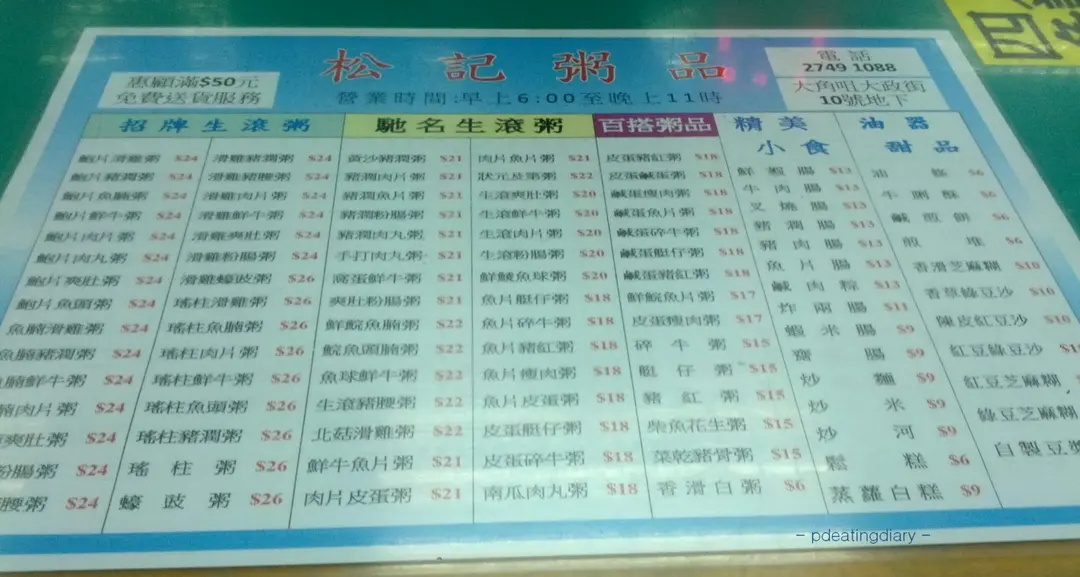 松記粥品
惠顧滿$50元
免費送貨服務
營業時間:早上6:00至晚上11時
電話
2749 1088
大角咀大政街
10號地下
招牌生滾粥
鮑片滑雞粥 $24
鮑片豬潤粥 $24
鮑片魚腩粥 $24
鮑片鮮牛粥 $24
鮑片肉片粥 $24
鮑片肉丸粥 $24
鮑片爽肚粥 $24
鮑片魚頭粥 $24
魚腩滑雞粥 $24
魚腩豬潤粥 $24
腩鮮牛粥 $24
肉片粥 $24
爽肚粥 $24
粉腸粥 $24
腰粥 $24
滑雞豬潤粥 $24
滑雞豬腰粥 $24
滑雞肉片粥 $24
滑雞鮮牛粥 $24
滑雞爽肚粥 $24
滑雞粉腸粥 $24
滑雞蠔豉粥 $26
瑤柱滑雞粥 $26
瑤柱魚腩粥 $26
瑤柱肉片粥 $26
瑤柱鮮牛粥 $26
瑤柱魚頭粥 $26
瑤柱豬潤粥 $26
瑤柱粥 $26
蠔豉粥 $26
馳名生滾粥
黃沙豬潤粥 $21
豬潤肉片粥 $21
豬潤魚片粥 $21
豬潤粉腸粥 $21
豬潤肉丸粥 $21
手打肉丸粥 $21
窩蛋鮮牛粥 $21
爽肚粉腸粥 $21
鮮鯇魚腩粥 $22
鯇魚頭腩粥 $22
魚球鮮牛粥 $22
生滾豬腰粥 $22
北菇滑雞粥 $22
鮮牛魚片粥 $21
肉片皮蛋粥 $21
肉片魚片粥 $21
狀元及第粥 $22
生滾爽肚粥 $20
生滾鮮牛粥 $20
生滾肉片粥 $20
生滾粉腸粥 $20
鮮鯪魚球粥 $20
魚片艇仔粥 $18
魚片碎牛粥 $18
魚片豬紅粥 $18
魚片瘦肉粥 $18
魚片皮蛋粥 $18
皮蛋艇仔粥 $18
皮蛋碎牛粥 $18
南瓜肉丸粥 $18
百搭粥品
皮蛋豬紅粥 $18
皮蛋鹹蛋粥 $18
鹹蛋瘦肉粥 $18
鹹蛋魚片粥 $18
鹹蛋碎牛粥 $18
鹹蛋艇仔粥 $18
鹹蛋豬紅粥 $18
鮮鯇魚片粥 $17
皮蛋瘦肉粥 $17
碎牛粥 $15
艇仔粥 $15
豬紅粥 $15
柴魚花生粥 $15
菜乾豬骨粥 $15
香滑白粥 $6
精美
小食
鮮蝦腸 $13
牛肉腸 $13
叉燒腸 $13
豬潤腸 $13
豬肉腸 $13
魚片腸 $13
鹹肉粽 $13
炸兩腸 $11
蝦米腸 $9
齋腸 $9
炒麵 $9
炒米 $9
炒河 $9
鬆糕 $6
蒸蘿白糕 $9
油器
甜品
油條 $6
牛脷酥 $6
鹹煎餅 $6
煎堆 $6
香滑芝麻糊 $10
香草綠豆沙 $10
陳皮紅豆沙 $10
紅豆綠豆沙
紅豆芝麻糊
綠豆芝麻糊
自製豆漿
- pdeatingdiary -